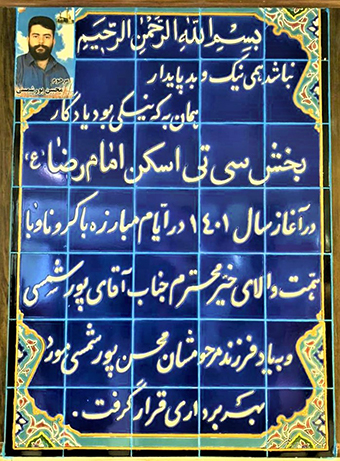 بِسْمِ اللهِ الرَّحْمٰنِ الرَّحیمِ
نباشد همی نیک و بد پایدار
همان به که نیکی بود یادگار
بخش سی تی اسکن امام رضا (ع)
در آغاز سال ۱۴۰۱ در ایّام مبارزه با کرونا و با
همّت والای خیّر محترم جناب آقای پورشمسی
و به یاد فرزند مرحومشان محسن پورشمسی مورد
بهره برداری قرار گرفت.
محسن پورشمسی